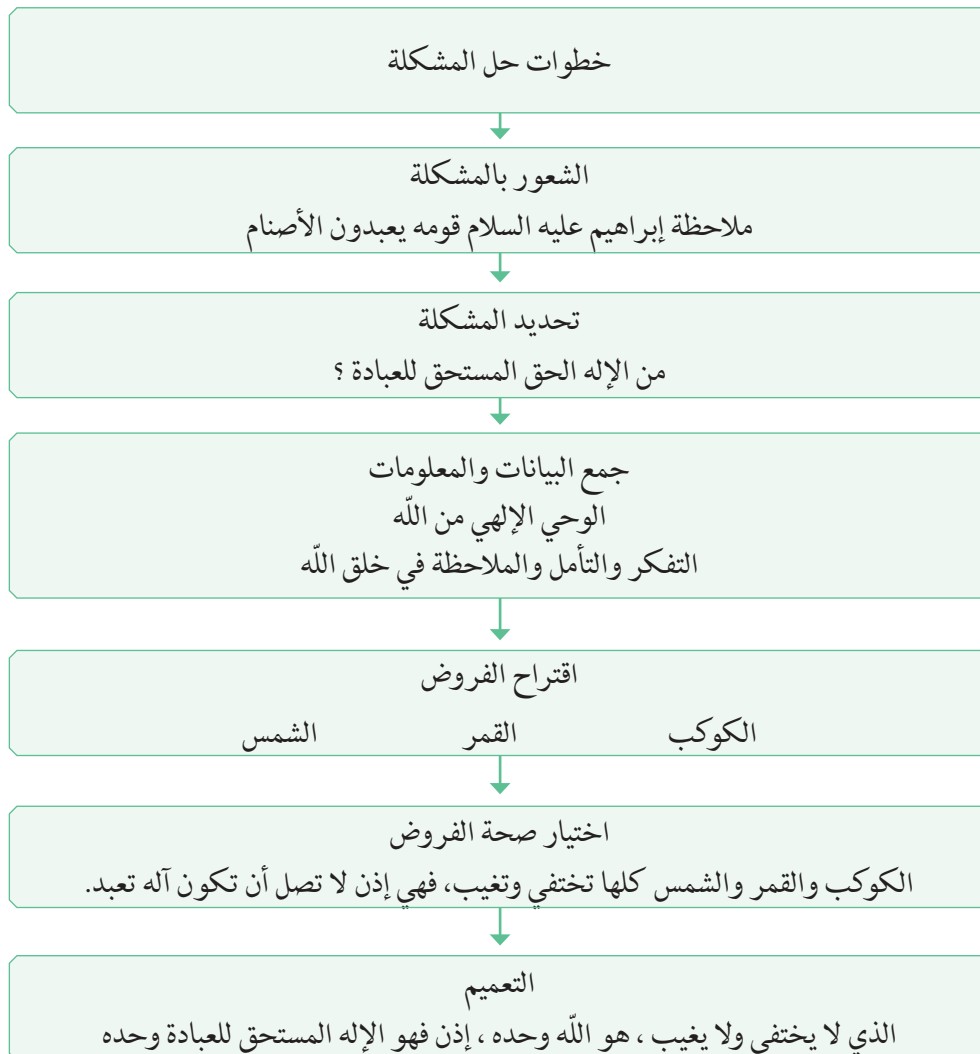 خطوات حل المشكلة
الشعور بالمشكلة
ملاحظة إبراهيم عليه السلام قومه يعبدون الأصنام
تحديد المشكلة
من الإله الحق المستحق للعبادة ؟
جمع البيانات والمعلومات
الوحي الإلهي من اللّه
التفكر والتأمل والملاحظة في خلق اللّه
اقتراح الفروض
الكوكب القمر الشمس
اختيار صحة الفروض
الكوكب والقمر والشمس كلها تختفي وتغيب، فهي إذن لا تصل أن تكون آله تعبد.
التعميم
الذي لا يختفي ولا يغيب ، هو اللّه وحده ، إذن فهو الإله المستحق للعبادة وحده